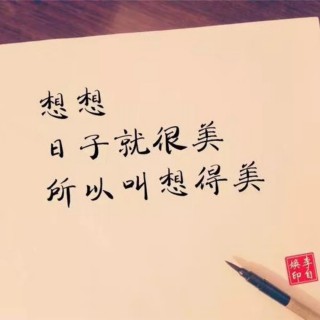 想想
日子就很美
所以叫想得美